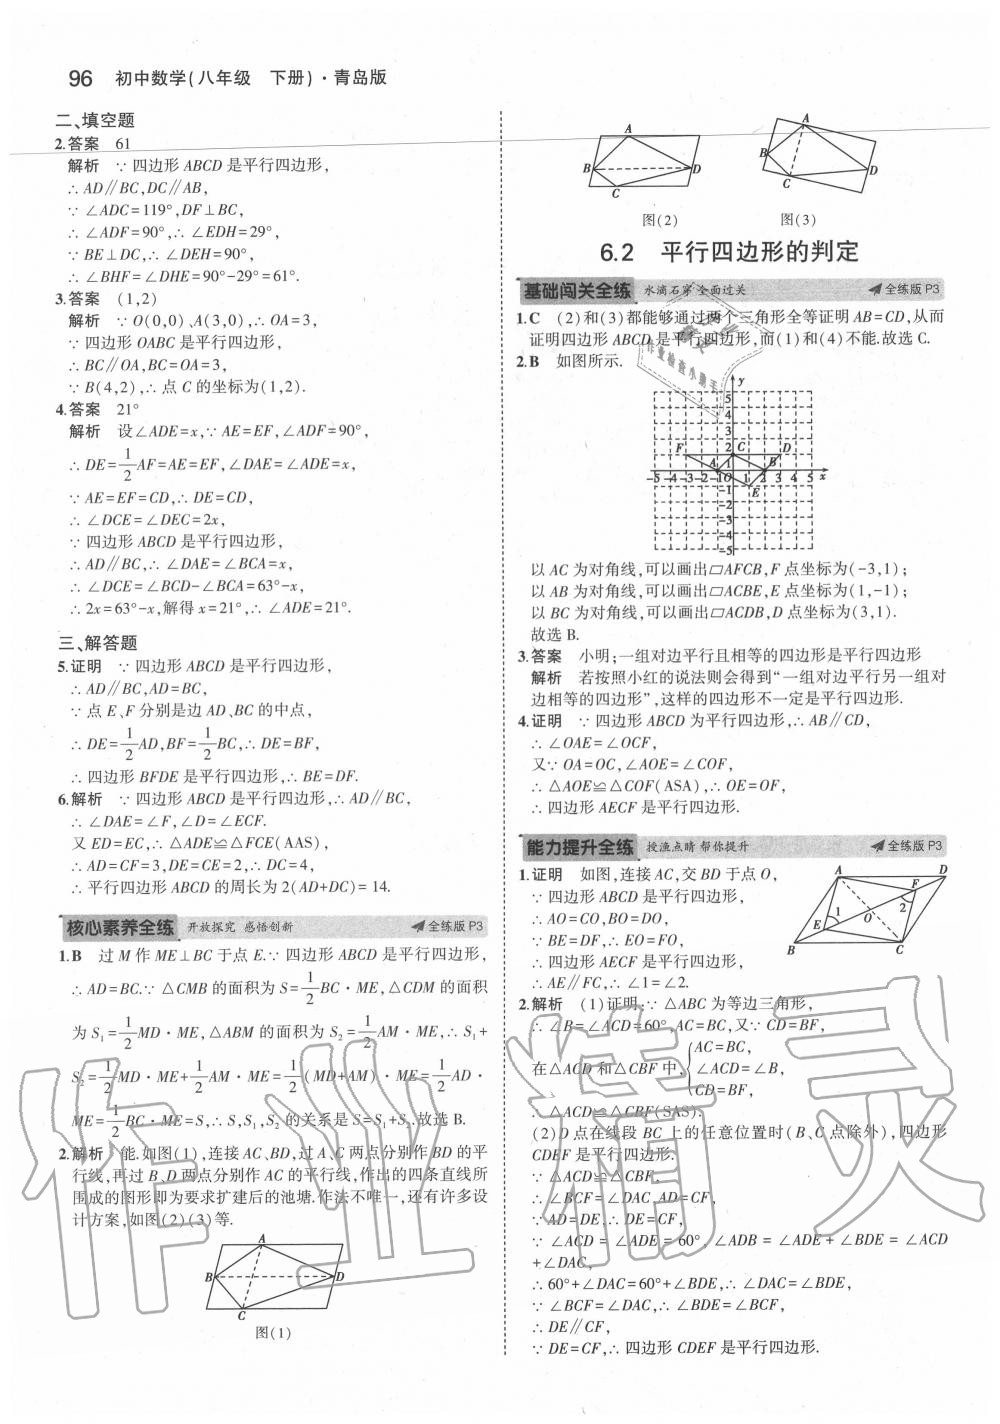 96 初中数学(八年级 下册)·青岛版
二、填空题
2.答案 61
解析 ∵四边形ABCD是平行四边形,
∴AD∥BC,DC∥AB,
∵∠ADC=119°,DF⊥BC,
∴∠ADF=90°,∴∠EDH=29°,
∵BE⊥DC,∴∠DEH=90°,
∴∠BHF=∠DHE=90°-29°=61°.
3.答案 (1,2)
解析 ∵O(0,0)、A(3,0),∴OA=3,
∵四边形OABC是平行四边形,
∴BC∥OA,BC=OA=3,
∵B(4,2),∴点C的坐标为(1,2).
4.答案 21°
解析 设∠ADE=x,∵AE=EF,∠ADF=90°,
∴DE=1/2AF=AE=EF,∠DAE=∠ADE=x,
∵AE=EF=CD,∴DE=CD,
∴∠DCE=∠DEC=2x,
∵四边形ABCD是平行四边形,
∴AD∥BC,∴∠DAE=∠BCA=x,
∴∠DCE=∠BCD-∠BCA=63°-x,
∴2x=63°-x,解得x=21°,∴∠ADE=21°.
三、解答题
5.证明 ∵四边形ABCD是平行四边形,
∴AD∥BC,AD=BC,
∵点E、F分别是边AD、BC的中点,
∴DE=1/2AD,BF=1/2BC,∴DE=BF,
∴四边形BFDE是平行四边形,∴BE=DF.
6.解析 ∵四边形ABCD是平行四边形,∴AD∥BC,
∴∠DAE=∠F,∠D=∠ECF.
又ED=EC,∴△ADE≌△FCE(AAS),
∴AD=CF=3,DE=CE=2,∴DC=4,
∴平行四边形ABCD的周长为2(AD+DC)=14.
核心素养全练 开放探究 感悟创新 全练版P3
1.B 过M作ME⊥BC于点E.∵四边形ABCD是平行四边形,
∴AD=BC.∵△CMB的面积为S=1/2BC·ME,△CDM的面积
为S₁=1/2MD·ME,△ABM的面积为S₂=1/2AM·ME,∴S₁+
S₂=1/2MD·ME+1/2AM·ME=1/2(MD+AM)·ME=1/2AD·
ME=1/2BC·ME=S,∴S,S₁,S₂的关系是S=S₁+S₂.故选B.
2.解析 能.如图(1),连接AC、BD,过A、C两点分别作BD的平
行线,再过B、D两点分别作AC的平行线,作出的四条直线所
围成的图形即为要求扩建后的池塘.作法不唯一,还有许多设
计方案,如图(2)(3)等.
A
B D
C
图(1)
A A
B D B D
C C
图(2) 图(3)
6.2 平行四边形的判定
基础闯关全练 水滴石穿 全面过关 全练版P3
1.C (2)和(3)都能够通过两个三角形全等证明AB=CD,从而
证明四边形ABCD是平行四边形,而(1)和(4)不能.故选C.
2.B 如图所示.
y
5
4
3
F 2 C D
A 1 B
-5 -4 -3 -2 -1 O 1 2 3 4 5 x
-1 E
-2
-3
-4
-5
以AC为对角线,可以画出▱AFCB,F点坐标为(-3,1);
以AB为对角线,可以画出▱ACBE,E点坐标为(1,-1);
以BC为对角线,可以画出▱ACDB,D点坐标为(3,1).
故选B.
3.答案 小明;一组对边平行且相等的四边形是平行四边形
解析 若按照小红的说法则会得到“一组对边平行另一组对
边相等的四边形”,这样的四边形不一定是平行四边形.
4.证明 ∵四边形ABCD为平行四边形,∴AB∥CD,
∴∠OAE=∠OCF,
又∵OA=OC,∠AOE=∠COF,
∴△AOE≌△COF(ASA),∴OE=OF,
∴四边形AECF是平行四边形.
能力提升全练 授渔点睛 帮你提升 全练版P3
1.证明 如图,连接AC,交BD于点O,
∵四边形ABCD是平行四边形,
∴AO=CO,BO=DO,
∵BE=DF,∴EO=FO,
∴四边形AECF是平行四边形,
∴AE∥FC,∴∠1=∠2.
A D
F
1 O 2
E
B C
2.解析 (1)证明:∵△ABC为等边三角形,
∴∠B=∠ACD=60°,AC=BC,又∵CD=BF,
在△ACD和△CBF中,{AC=BC,
∠ACD=∠B,
CD=BF,
∴△ACD≌△CBF(SAS).
(2)D点在线段BC上的任意位置时(B、C点除外),四边形
CDEF是平行四边形.
∵△ACD≌△CBF,
∴∠BCF=∠DAC,AD=CF,
∵AD=DE,∴DE=CF,
∵∠ACD=∠ADE=60°,∠ADB=∠ADE+∠BDE=∠ACD
+∠DAC,
∴60°+∠DAC=60°+∠BDE,∴∠DAC=∠BDE,
∵∠BCF=∠DAC,∴∠BDE=∠BCF,
∴DE∥CF,
∵DE=CF,∴四边形CDEF是平行四边形.
作业精灵